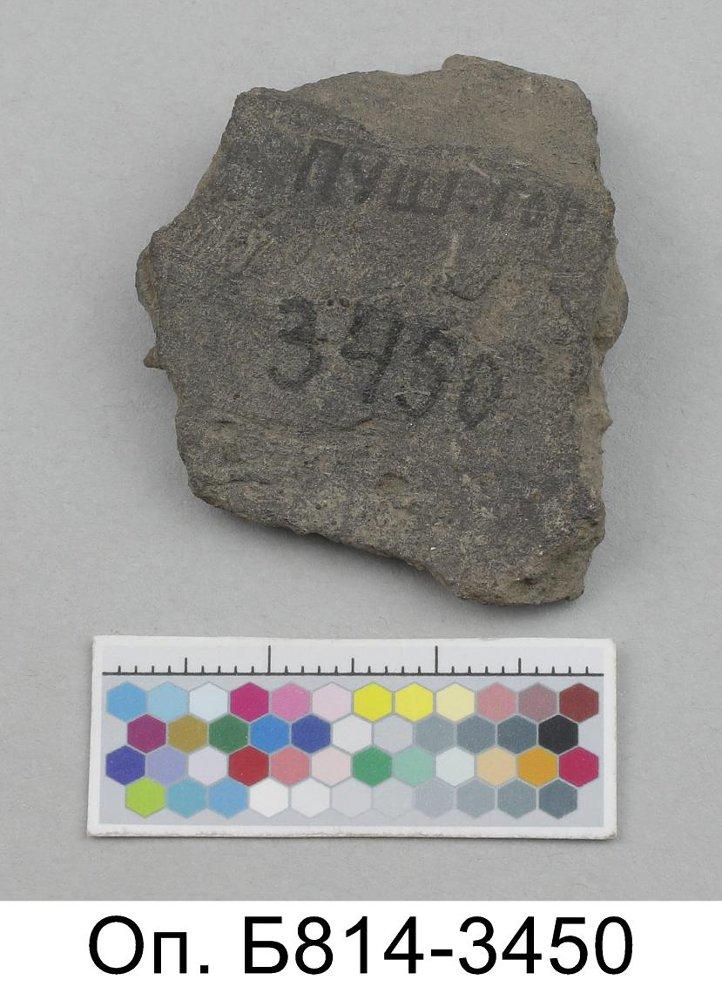 ПУШ-ГОР
3450
Оп. Б814-3450